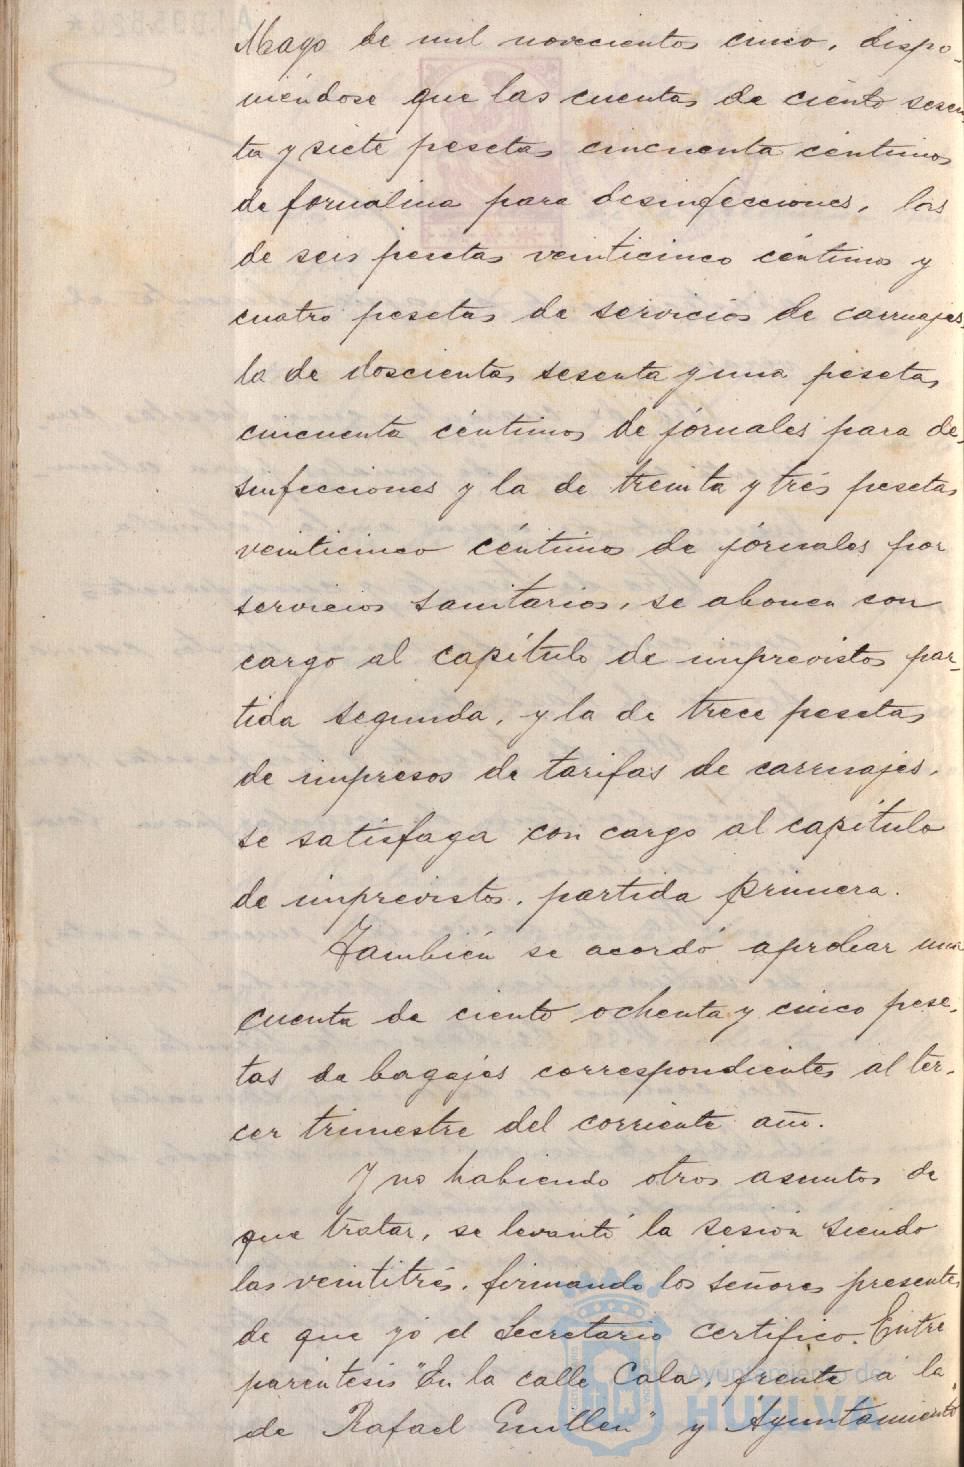 Mayo de mil novecientos cinco, dispo-
niéndose que las cuentas de ciento sesen
ta y siete pesetas cincuenta céntimos
de formalina para desinfecciones, las
de seis pesetas veinticinco céntimos y
cuatro pesetas de servicios de carruajes,
la de doscientas sesenta y una pesetas
cincuenta céntimos de jornales para de-
sinfecciones y la de treinta y tres pesetas
veinticinco céntimos de jornales por
servicios sanitarios, se abonen con
cargo al capítulo de imprevistos par-
tida segunda, y la de trece pesetas
de impresos de tarifas de carruajes,
se satisfaga con cargo al capítulo
de imprevistos, partida primera.
También se acordó aprobar una
cuenta de ciento ochenta y cinco pese-
tas de bagajes correspondientes al ter-
cer trimestre del corriente año.
Y no habiendo otros asuntos de
que tratar, se levantó la sesión siendo
las veintitrés, firmando los señores presentes
de que yó el Secretario certifico. Entre
paréntesis "En la calle Cala, frente á la
de Rafael Guillen" y Ayuntamiento
Ayuntamiento de
HUELVA